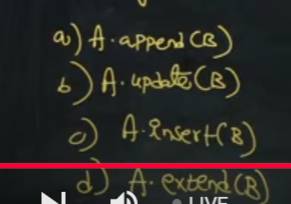 a) A.append(B)
b) A.update(B)
c) A.insert(B)
d) A.extend(B)
LIVE